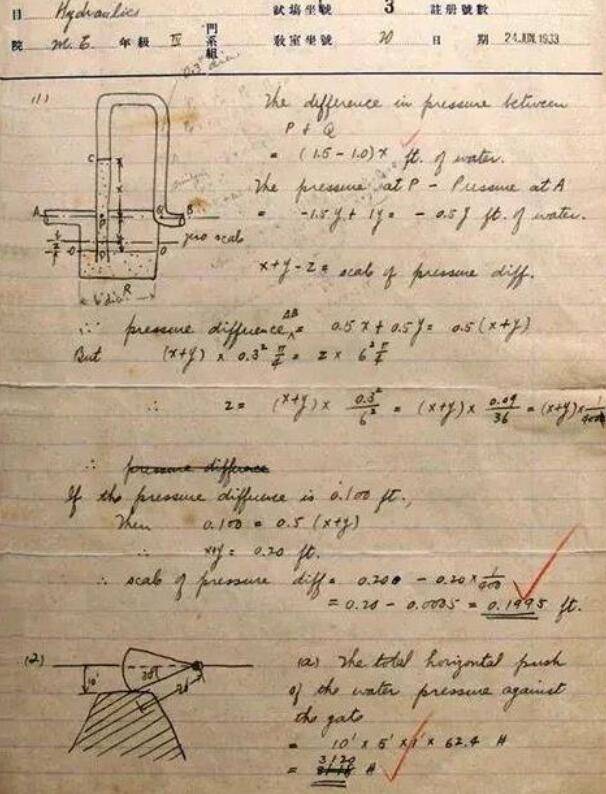 目 Hydraulics 試場坐號 3 註册號數
院 M. E. 年級 IV 門系組 教室坐號 20 日期 24 JUN. 1933
0.3" dia.
(1) The difference in pressure between
P & Q
= (1.5 - 1.0) x ft. of water.
The pressure at P - Pressure at A
= -1.5y + 1y = -0.5y ft. of water.
C
x
A P Q B
zero scale
O O
R
6" dia.
x+y-z = scale of pressure diff.
∴ pressure difference AB = 0.5x + 0.5y = 0.5 (x+y)
But (x+y) × 0.3² π/4 = z × 6² π/4
∴ z = (x+y) × 0.3²/6² = (x+y) × 0.09/36 = (x+y) × 1/400
∴ pressure difference
If the pressure difference is 0.100 ft.,
Then 0.100 = 0.5 (x+y)
∴ x+y = 0.20 ft.
∴ scale of pressure diff = 0.200 - 0.20 × 1/400
= 0.20 - 0.0005 = 0.1995 ft.
(2) (a) The total horizontal push
of the water pressure against
the gate
= 10' × 5' × 1' × 62.4 #
= 3120 #
10'